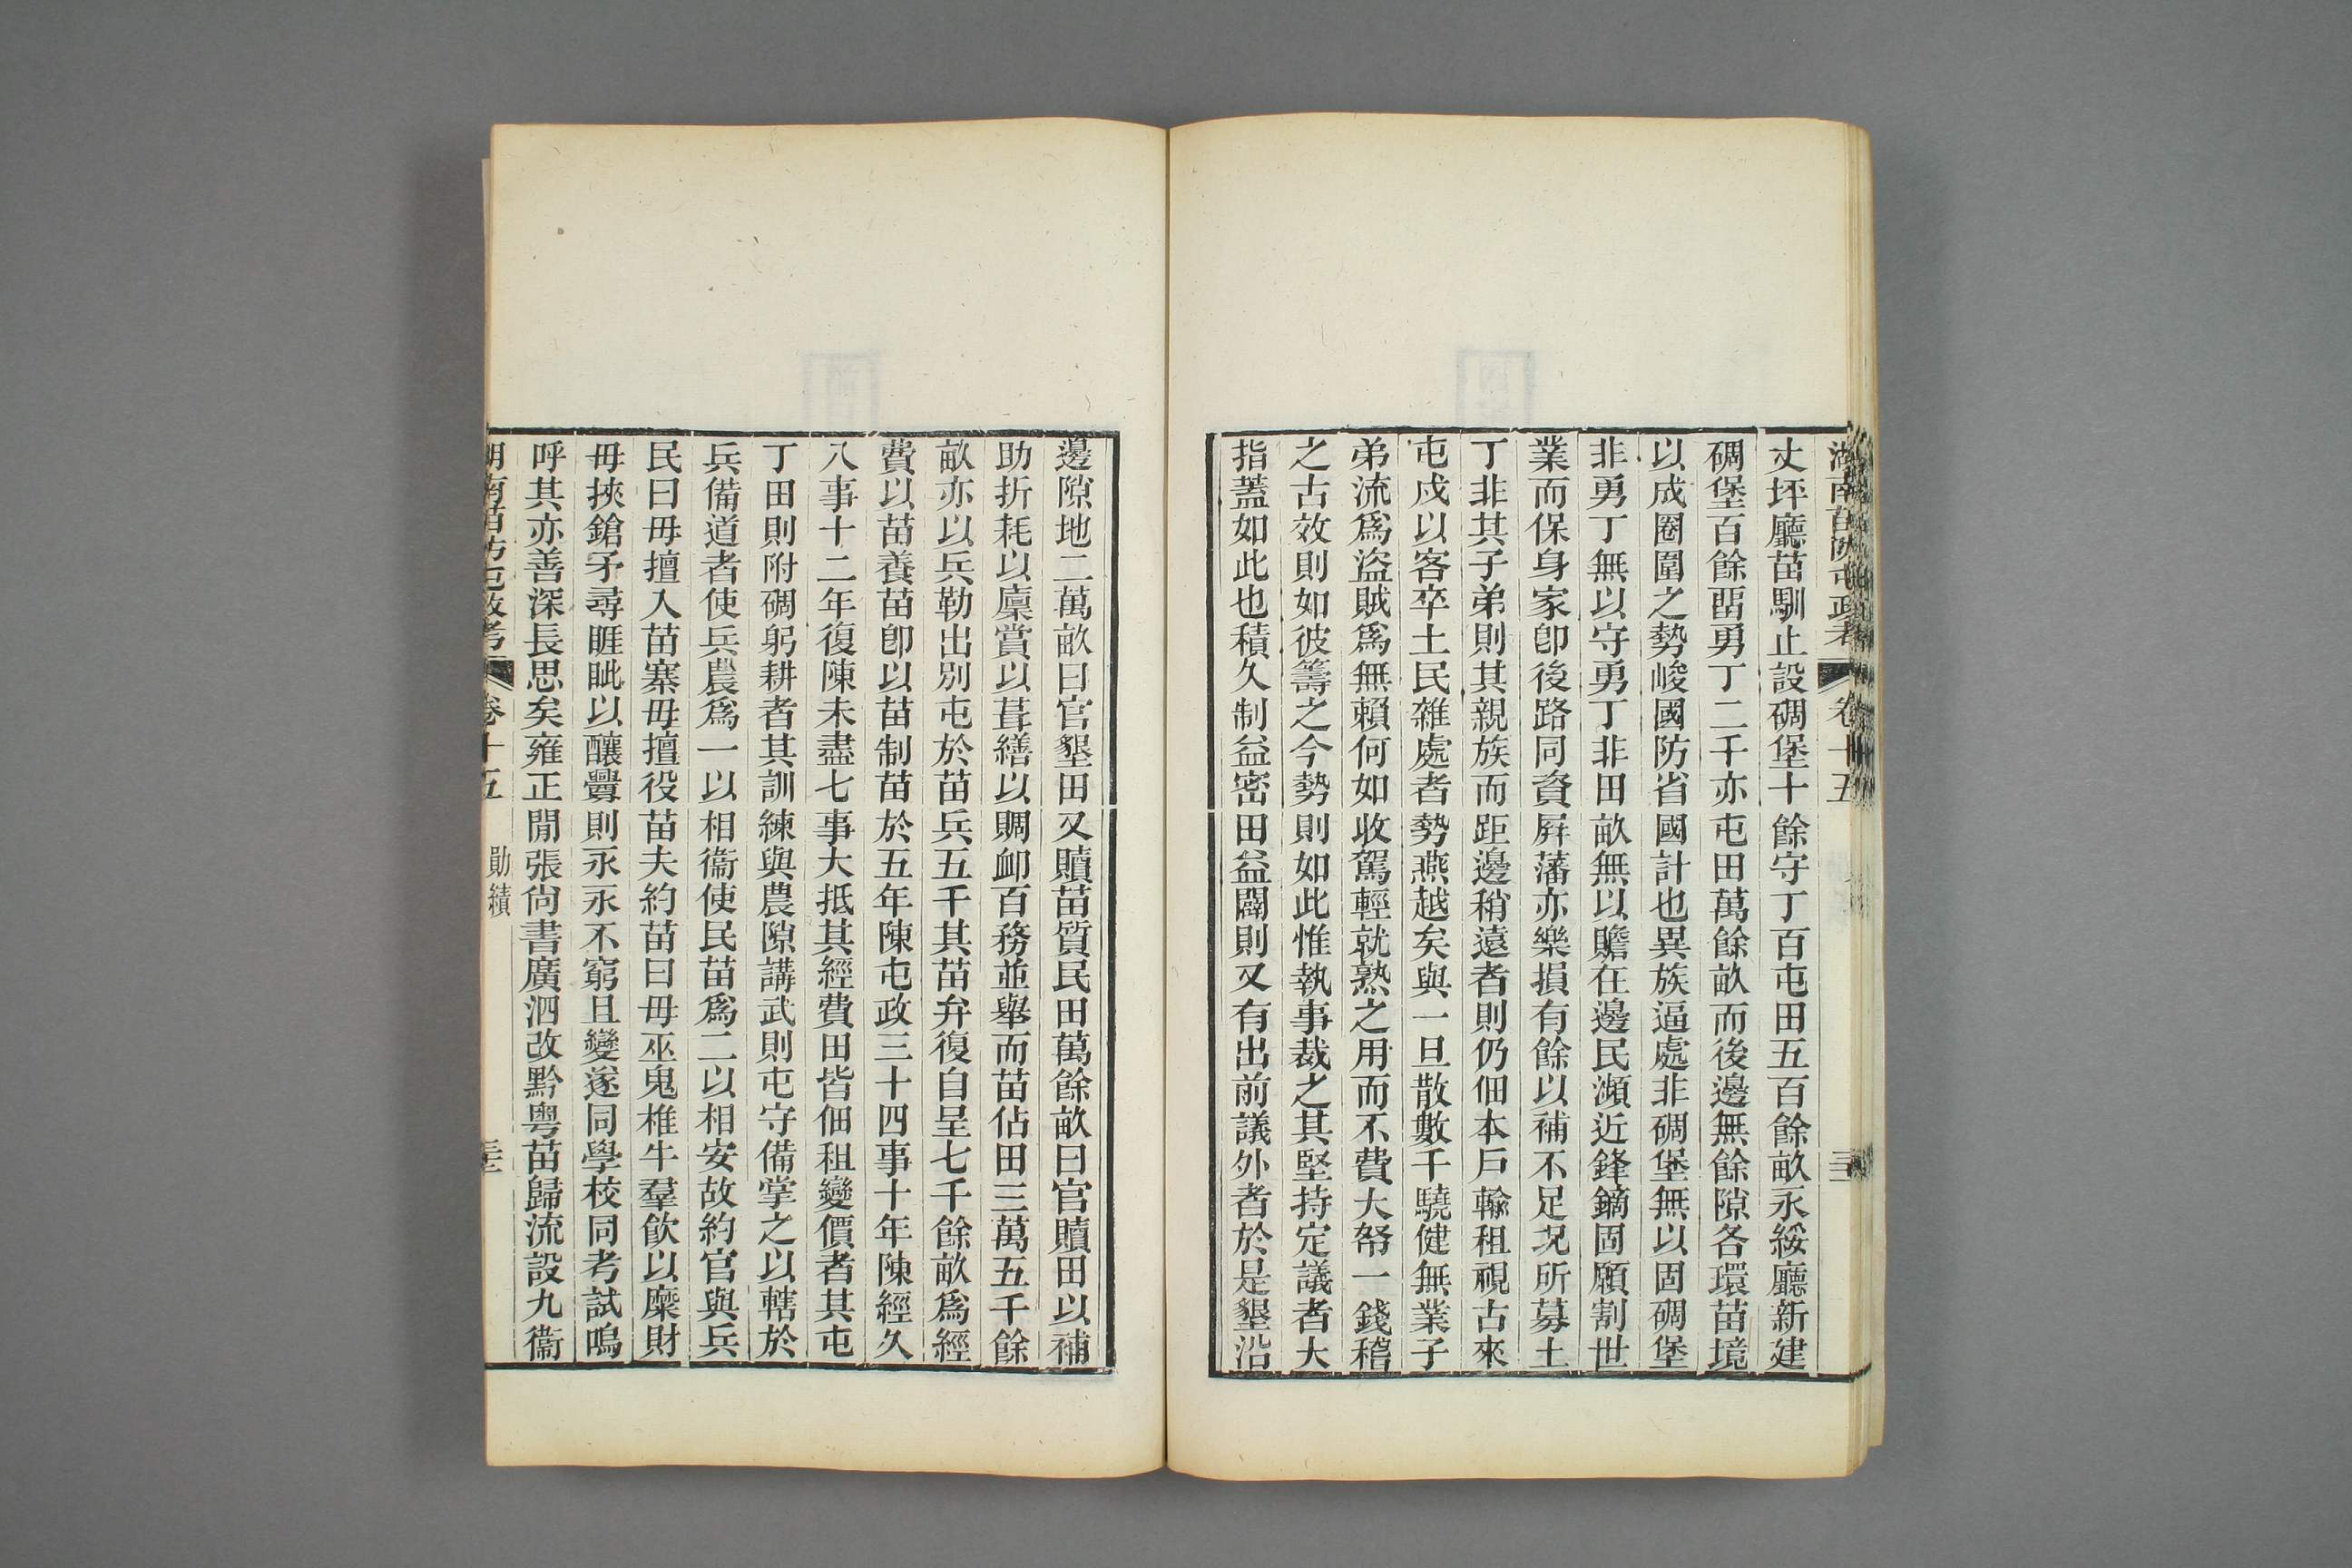 湖南苗防屯政考 卷十五
丈坪廳苗馴止設碉堡十餘守丁百屯田五百餘畝永綏廳新建
碉堡百餘畱勇丁二千亦屯田萬餘畝而後邊無餘隙各環苗境
以成圈圍之勢峻國防省國計也異族逼處非碉堡無以固碉堡
非勇丁無以守勇丁非田畝無以贍在邊民瀕近鋒鏑固願割世
業而保身家卽後路同資屛藩亦樂損有餘以補不足況所募土
丁非其子弟則其親族而距邊稍遠者則仍佃本戶輸租視古來
屯戍以客卒土民雜處者勢燕越矣與一旦散數千驍健無業子
弟流爲盜賊爲無賴何如收駕輕就熟之用而不費大帑一錢稽
之古效則如彼籌之今勢則如此惟執事裁之其堅持定議者大
指蓋如此也積久制益密田益闢則又有出前議外者於是墾沿
邊隙地二萬畝曰官墾田又贖苗質民田萬餘畝曰官贖田以補
助折耗以廩賞以葺繕以賙衈百務並舉而苗佔田三萬五千餘
畝亦以兵勒出別屯於苗兵五千其苗弁復自呈七千餘畝爲經
費以苗養苗卽以苗制苗於五年陳屯政三十四事十年陳經久
八事十二年復陳未盡七事大抵其經費田皆佃租變價者其屯
丁田則附碉躬耕者其訓練與農隙講武則屯守備掌之以轄於
兵備道者使兵農爲一以相衞使民苗爲二以相安故約官與兵
民曰毋擅入苗寨毋擅役苗夫約苗曰毋巫鬼椎牛羣飮以糜財
毋挾鎗矛尋睚眦以釀釁則永永不窮且變遂同學校同考試嗚
呼其亦善深長思矣雍正閒張尙書廣泗改黔粤苗歸流設九衞
湖南苗防屯政考 卷十五 勛績